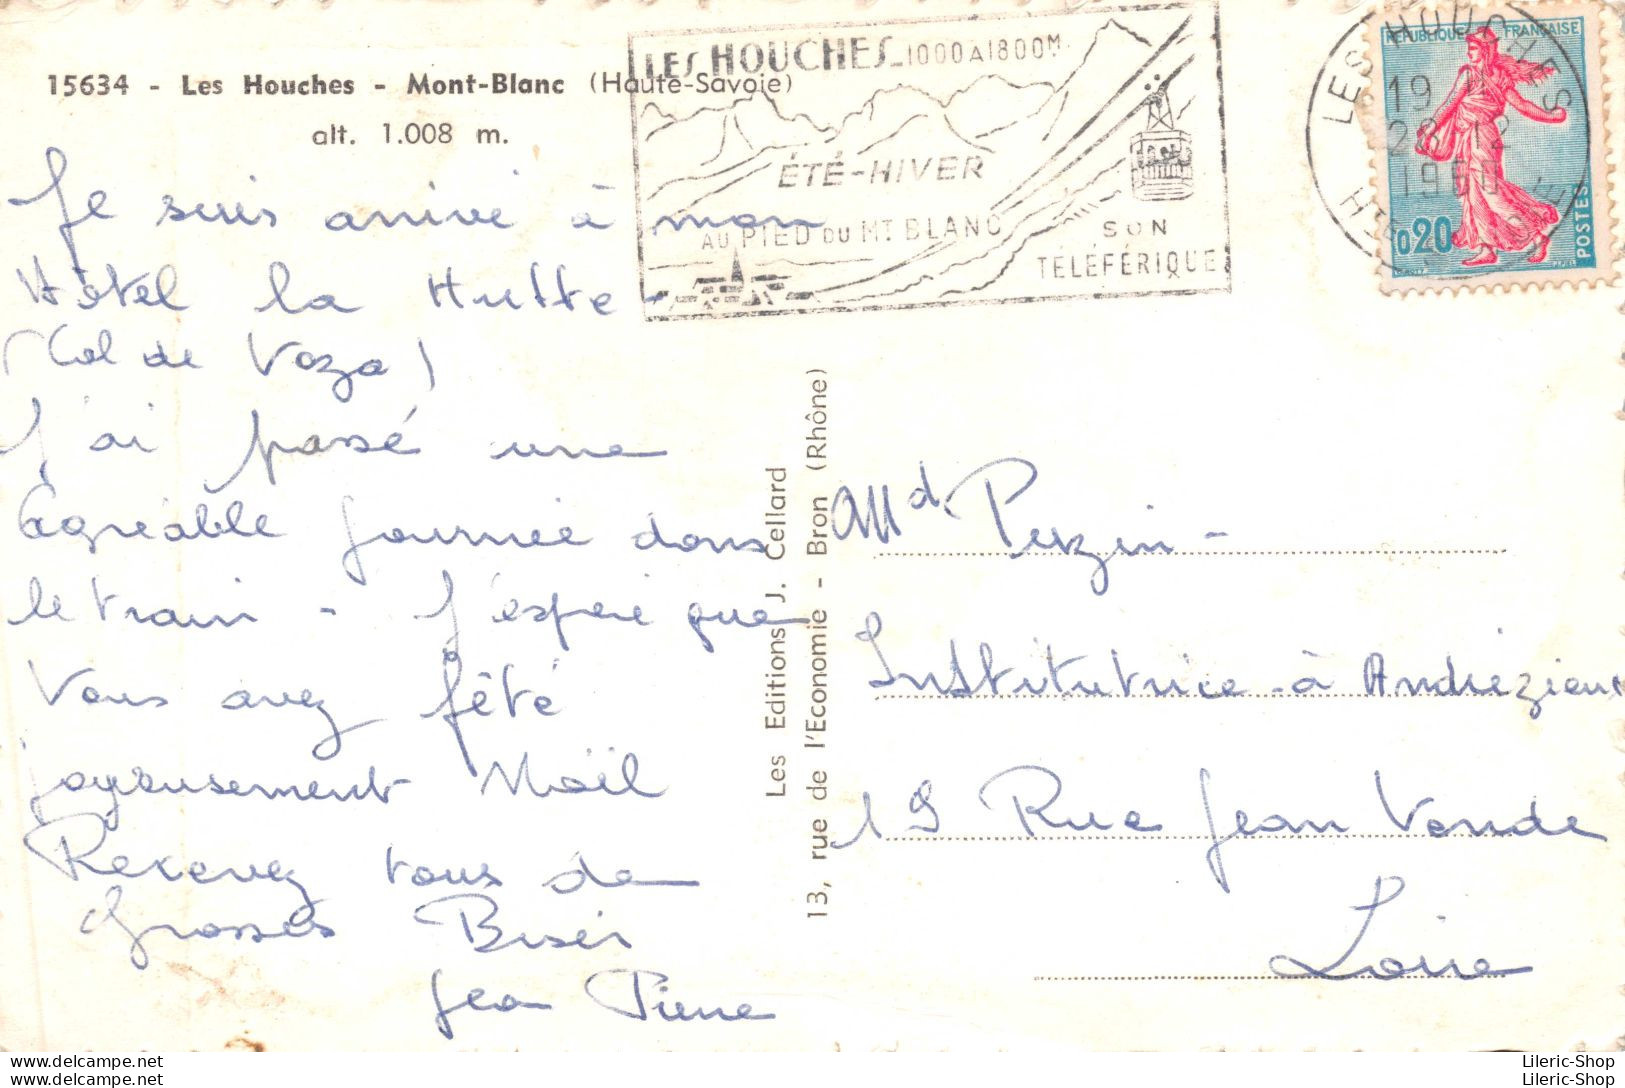 15634 - Les Houches - Mont-Blanc (Haute-Savoie)
alt. 1.008 m.
LES HOUCHES_1000A1800M.
ÉTÉ-HIVER
AU PIED DU MT BLANC
SON
TÉLÉFÉRIQUE
LES HOUCHES
19 H
28-12
1960
HTE
REPUBLIQUE FRANÇAISE
0,20
POSTES
Je suis arrivé à mon
Hôtel la Hutte -
(Col de Voza)
J'ai passé une
agréable journée dans
le train - J'espère que
Vous avez fêté
joyeusement Noël
Recevez tous de
Grosses Bises
Jean Pierre
Les Editions J. Cellard
13, rue de l'Economie - Bron (Rhône)
Md Perzin -
Institutrice à Andrézieux
19 Rue Jean Vende
Loire
Lileric-Shop
Lileric-Shop
Lileric-Shop
Lileric-Shop